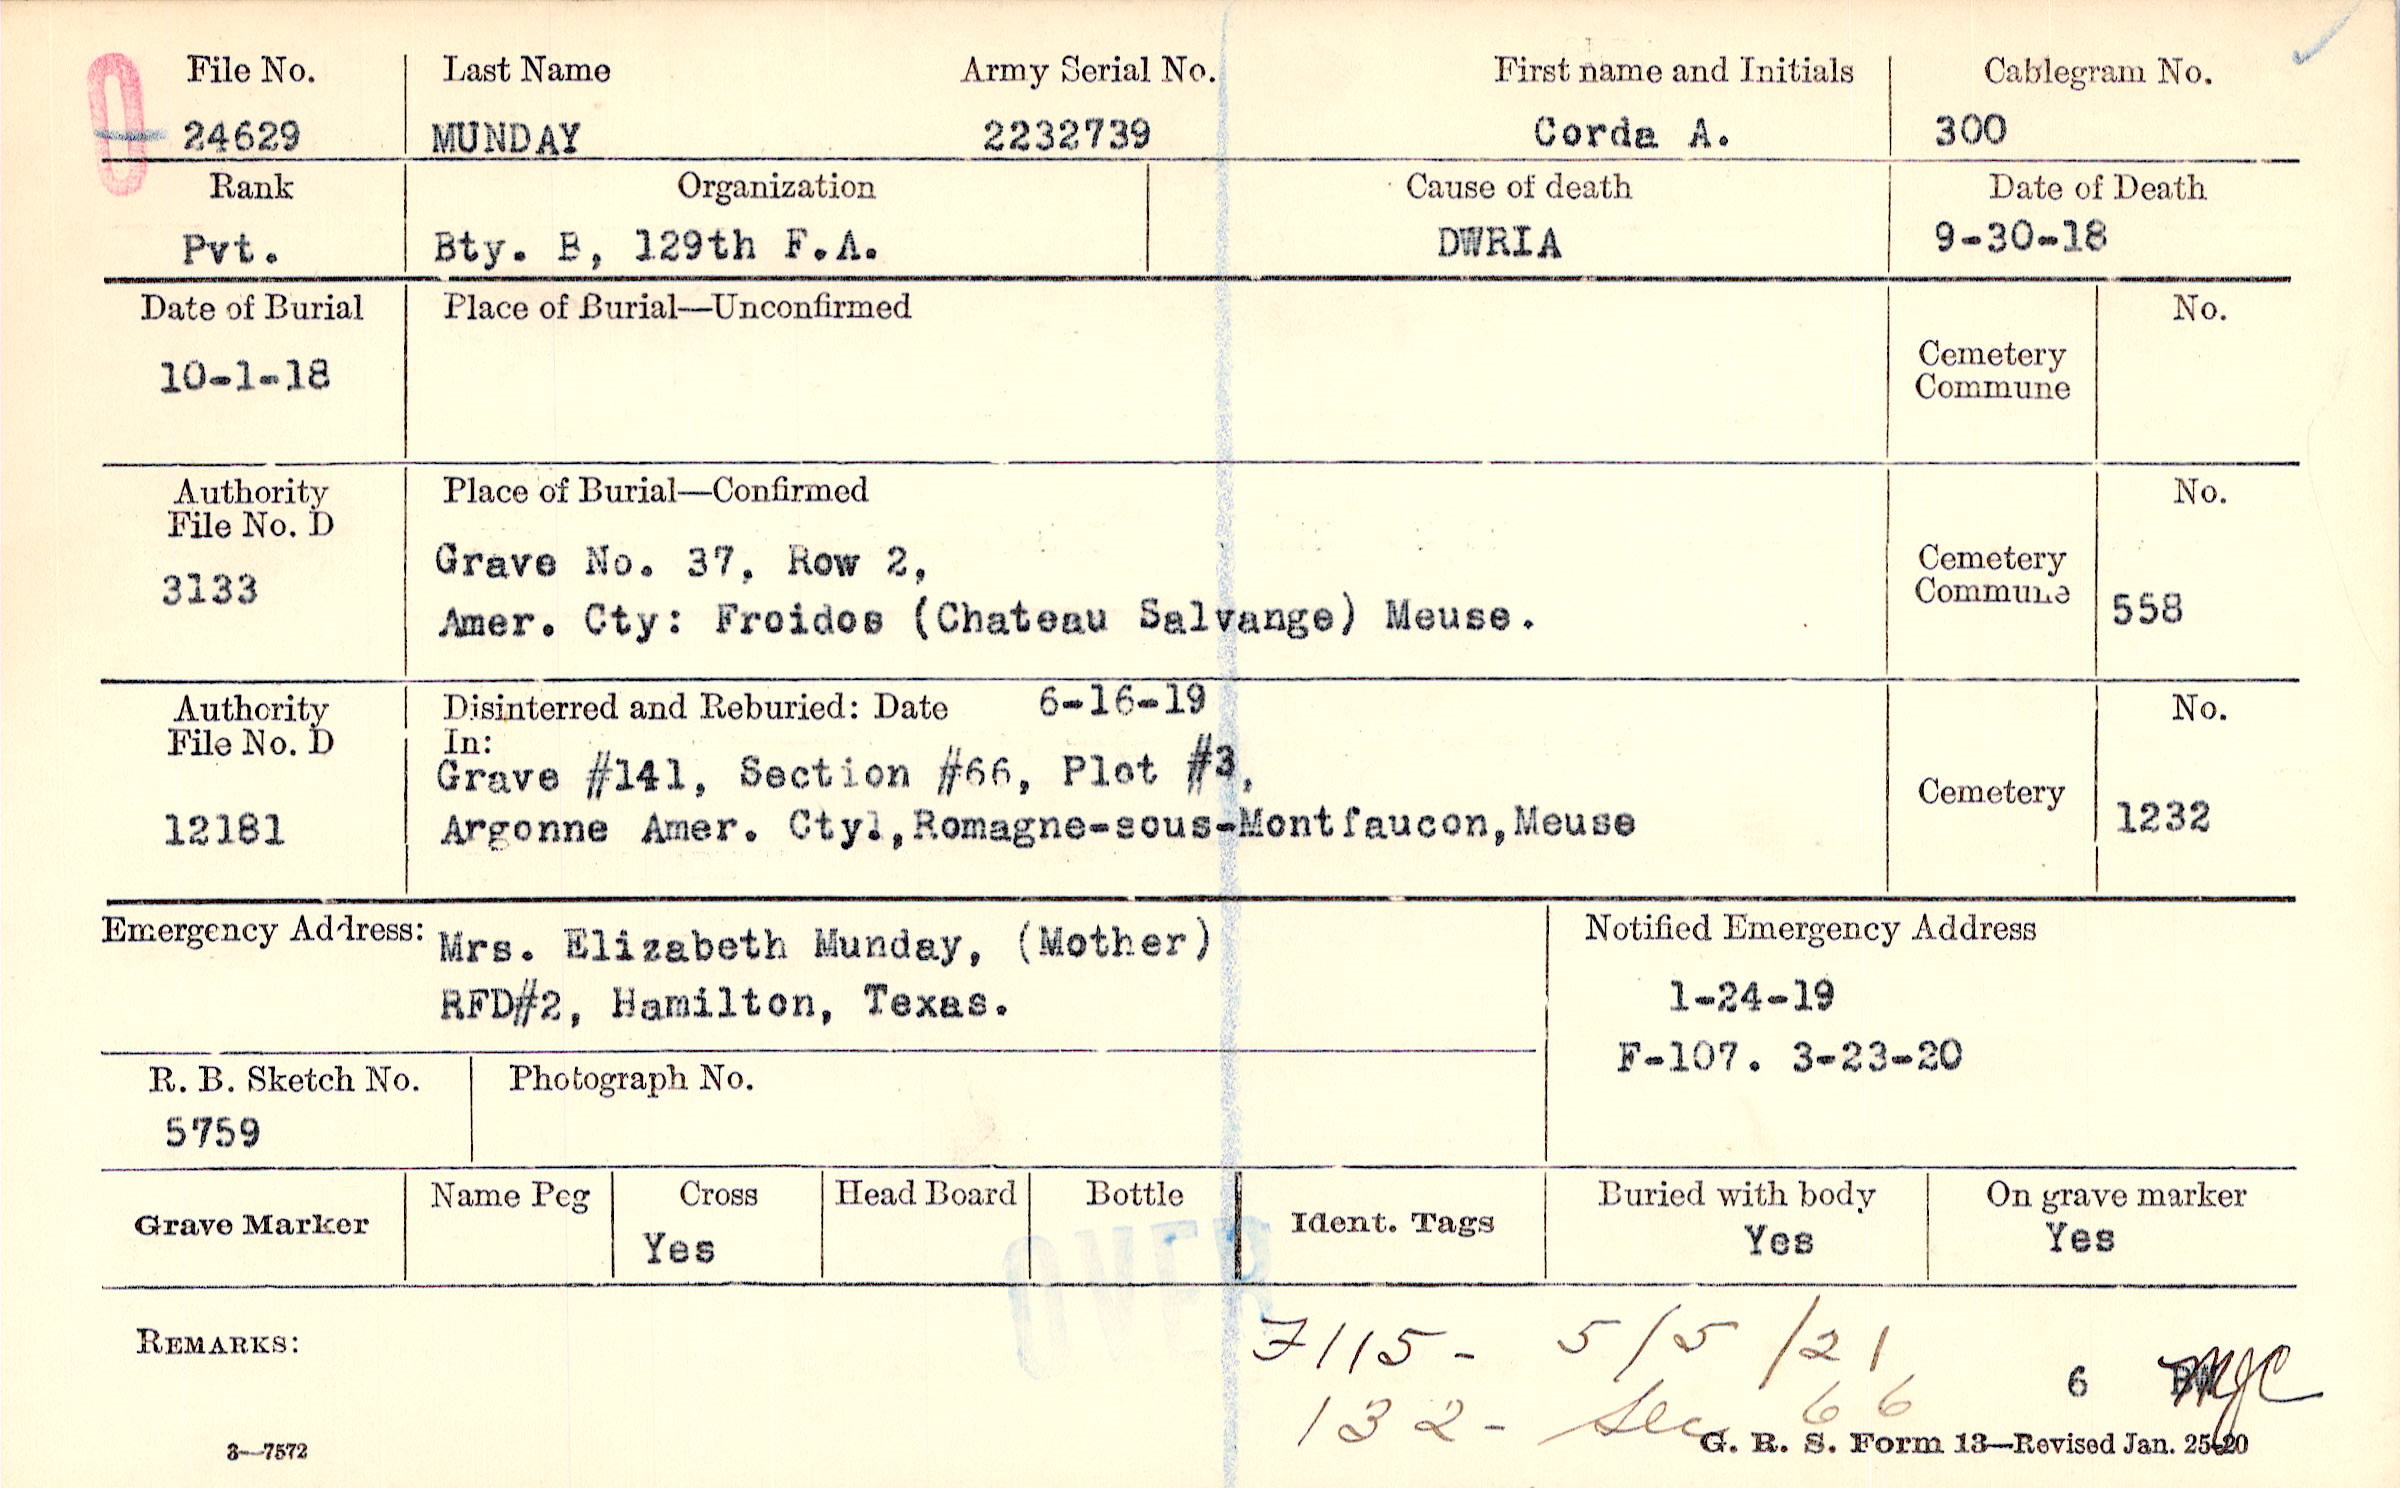 File No. Last Name Army Serial No. First name and Initials Cablegram No.
24629 MUNDAY 2232739 Corda A. 300
Rank Organization Cause of death Date of Death
Pvt. Bty. B, 129th F.A. DWRIA 9-30-18
Date of Burial Place of Burial—Unconfirmed No.
10-1-18 Cemetery
Commune
Authority Place of Burial—Confirmed No.
File No. D
3133 Grave No. 37, Row 2, Cemetery
Commune 558
Amer. Cty: Froidos (Chateau Salvange) Meuse.
Authority Disinterred and Reburied: Date 6-16-19 No.
File No. D In:
Grave #141, Section #66, Plot #3, Cemetery
12181 Argonne Amer. Cty.,Romagne-sous-Montfaucon,Meuse 1232
Emergency Address: Mrs. Elizabeth Munday, (Mother) Notified Emergency Address
RFD#2, Hamilton, Texas. 1-24-19
F-107. 3-23-20
R. B. Sketch No. Photograph No.
5759
Grave Marker Name Peg Cross Head Board Bottle Ident. Tags Buried with body On grave marker
Yes Yes Yes
OVER
REMARKS: F115 - 5/5/21
6 MJC
132 - Sec 66
3—7572 G. R. S. Form 13—Revised Jan. 25-20